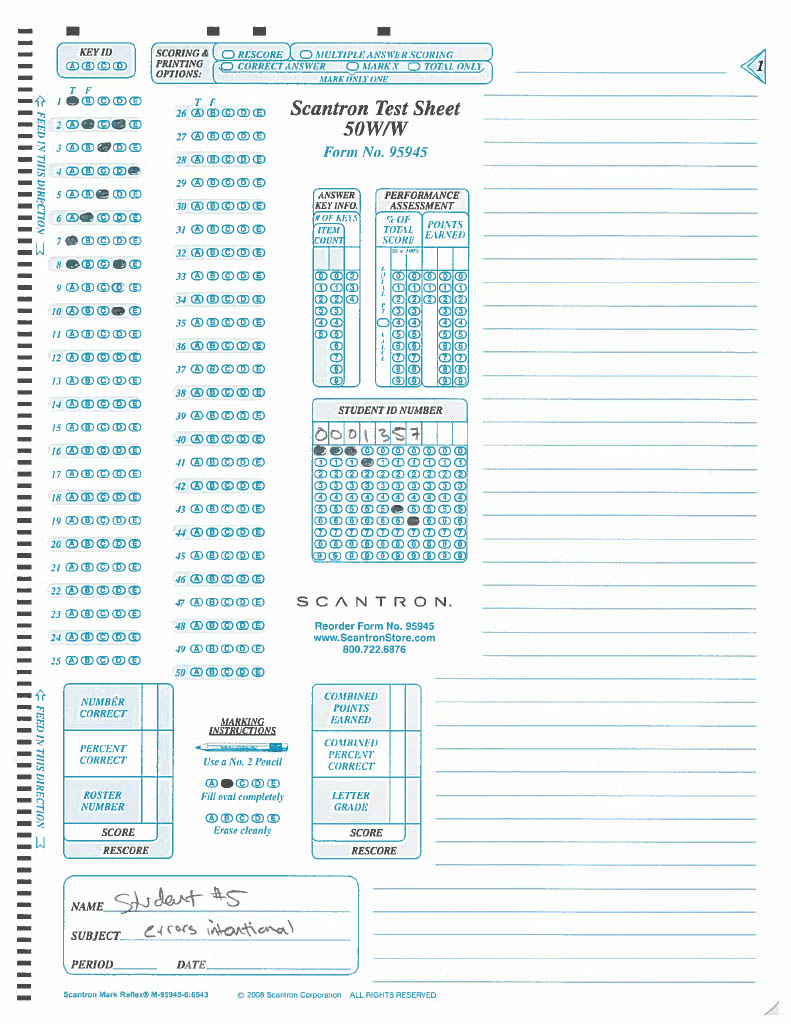 KEY ID
A B C D
SCORING & PRINTING OPTIONS:
RESCORE MULTIPLE ANSWER SCORING
CORRECT ANSWER MARK X TOTAL ONLY
MARK ONLY ONE
1
FEED IN THIS DIRECTION
T F
1 B C D E
2 A C E
3 A B D E
4 A B C D
5 A B D E
6 A C D E
7 B C D E
8 B C E
9 A B C D E
10 A B C E
11 A B C D E
12 A B C D E
13 A B C D E
14 A B C D E
15 A B C D E
16 A B C D E
17 A B C D E
18 A B C D E
19 A B C D E
20 A B C D E
21 A B C D E
22 A B C D E
23 A B C D E
24 A B C D E
25 A B C D E
T F
26 A B C D E
27 A B C D E
28 A B C D E
29 A B C D E
30 A B C D E
31 A B C D E
32 A B C D E
33 A B C D E
34 A B C D E
35 A B C D E
36 A B C D E
37 A B C D E
38 A B C D E
39 A B C D E
40 A B C D E
41 A B C D E
42 A B C D E
43 A B C D E
44 A B C D E
45 A B C D E
46 A B C D E
47 A B C D E
48 A B C D E
49 A B C D E
50 A B C D E
Scantron Test Sheet
50W/W
Form No. 95945
ANSWER
KEY INFO.
# OF KEYS
ITEM
COUNT
0 0 2
1 1 3
2 2 4
3 3
4 4
5 5
6
7
8
9
PERFORMANCE
ASSESSMENT
% OF
TOTAL
SCORE
POINTS
EARNED
TOTAL PT VALUE
0 0 0 0 0
1 1 1 1 1
2 2 2 2 2
3 3 3 3
4 4 4 4
5 5 5 5
6 6 6 6
7 7 7 7
8 8 8 8
9 9 9 9
STUDENT ID NUMBER
0 0 0 1 3 5 7
0 0 0 0 0 0 0
1 1 1 1 1 1 1 1 1
2 2 2 2 2 2 2 2 2 2
3 3 3 3 3 3 3 3 3 3
4 4 4 4 4 4 4 4 4 4
5 5 5 5 5 5 5 5 5
6 6 6 6 6 6 6 6 6
7 7 7 7 7 7 7 7 7 7
8 8 8 8 8 8 8 8 8 8
9 9 9 9 9 9 9 9 9 9
SCANTRON.
Reorder Form No. 95945
www.ScantronStore.com
800.722.6876
FEED IN THIS DIRECTION
NUMBER
CORRECT
PERCENT
CORRECT
ROSTER
NUMBER
SCORE
RESCORE
MARKING
INSTRUCTIONS
Use a No. 2 Pencil
A C D E
Fill oval completely
A B C D E
Erase cleanly
COMBINED
POINTS
EARNED
COMBINED
PERCENT
CORRECT
LETTER
GRADE
SCORE
RESCORE
NAME Student #5
SUBJECT errors intentional
PERIOD DATE
Scantron Mark Reflex® M-95945-6:6543 © 2008 Scantron Corporation ALL RIGHTS RESERVED.